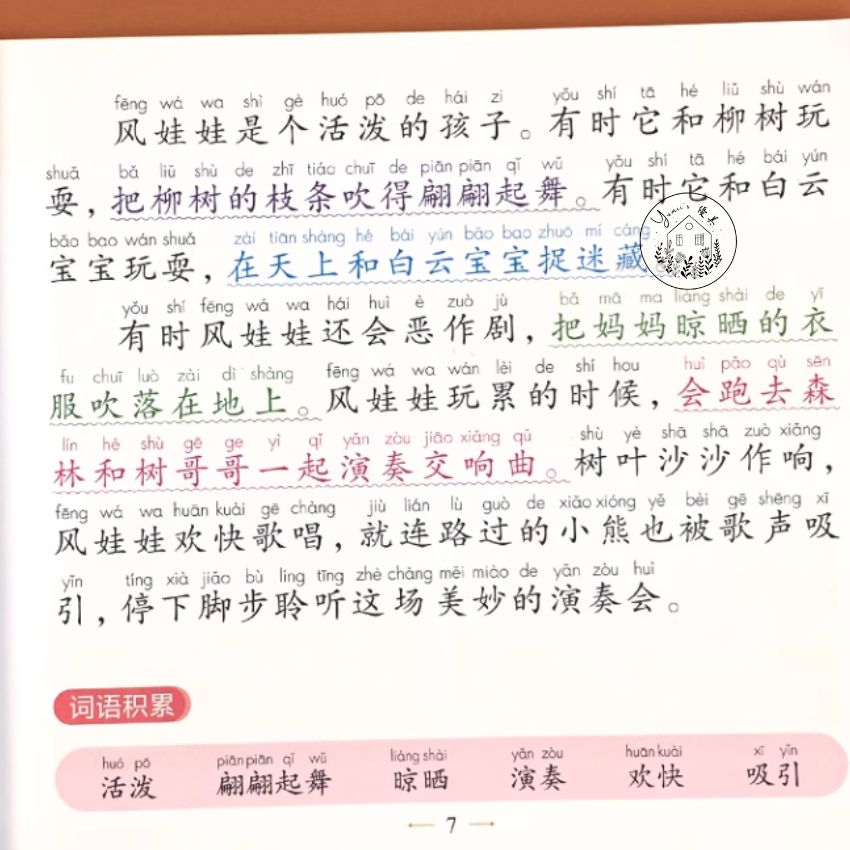 fēng wá wa shì gè huó pō de hái zi yǒu shí tā hé liǔ shù wán
风娃娃是个活泼的孩子。有时它和柳树玩
shuǎ bǎ liǔ shù de zhī tiáo chuī de piān piān qǐ wǔ yǒu shí tā hé bái yún
耍，把柳树的枝条吹得翩翩起舞。有时它和白云
bǎo bao wán shuǎ zài tiān shàng hé bái yún bǎo bao zhuō mí cáng
宝宝玩耍，在天上和白云宝宝捉迷藏
yǒu shí fēng wá wa hái huì è zuò jù bǎ mā ma liàng shài de yī
有时风娃娃还会恶作剧，把妈妈晾晒的衣
fu chuī luò zài dì shàng fēng wá wa wán lèi de shí hou huì pǎo qù sēn
服吹落在地上。风娃娃玩累的时候，会跑去森
lín hé shù gē ge yì qǐ yǎn zòu jiāo xiǎng qǔ shù yè shā shā zuò xiǎng
林和树哥哥一起演奏交响曲。树叶沙沙作响，
fēng wá wa huān kuài gē chàng jiù lián lù guò de xiǎo xióng yě bèi gē shēng xī
风娃娃欢快歌唱，就连路过的小熊也被歌声吸
yǐn tíng xià jiǎo bù líng tīng zhè chǎng měi miào de yǎn zòu huì
引，停下脚步聆听这场美妙的演奏会。
词语积累
huó pō piān piān qǐ wǔ liàng shài yǎn zòu huān kuài xī yǐn
活泼 翩翩起舞 晾晒 演奏 欢快 吸引
7